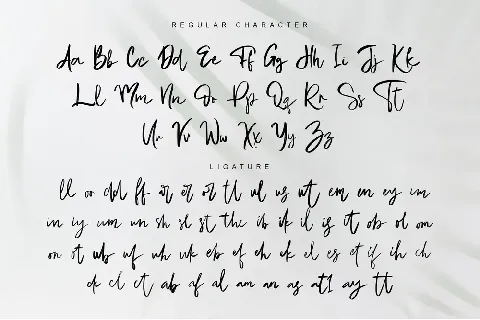 REGULAR CHARACTER
Aa Bb Cc Dd Ee Ff Gg Hh Ii Jj Kk
Ll Mm Nn Oo Pp Qq Rr Ss Tt
Uu Vv Ww Xx Yy Zz
LIGATURE
ll oo dd ff ar er or tl ul us ut em en ey im
in iy um un sh sl st the ib ik il is it ob ol om
on ot ub uf uh uk eb ef eh ek el es et if ih ch
ck cl ct ab af al am an as at ay tt